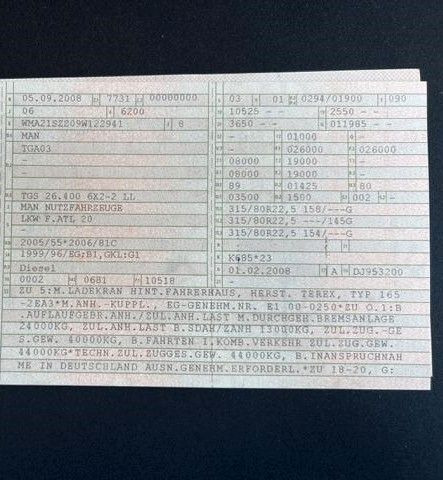 B 05.09.2008 2.1 7731 2.2 00000000
J 06 4 6200
E WMA21SZZ09W122941 3 8
D.1 MAN
TGA03
-
-
D.3 TGS 26.400 6X2-2 LL
2 MAN NUTZFAHRZEUGE
5 LKW F.ATL 20
-
2005/55*2006/81C
1999/96/EG;B1,GKL:G1
Diesel
0002 0681 10518
03 01 0294/01900 090
10525 - - 2550 - -
3650 - - 011985 - -
- 01000 -
- 026000 026000
08000 19000 -
08000 19000 -
89 01425 80
03500 1500 002 -
315/80R22,5 158/---G
315/80R22,5 ---/145G
315/80R22,5 154/---G
-
K685*23
01.02.2008 A DJ953200
ZU 5:M.LADEKRAN HINT.FAHRERHAUS, HERST. TEREX, TYP 165
-2EA3*M.ANH.-KUPPL., EG-GENEHM.NR. E1 00-0250*ZU O.1:B
.AUFLAUFGEBR.ANH./ZUL.ANH.LAST M.DURCHGEH.BREMSANLAGE
24000KG, ZUL.ANH.LAST B.SDAH/ZANH 13000KG, ZUL.ZUG.-GE
S.GEW. 40000KG, B.FAHRTEN I.KOMB.VERKEHR ZUL.ZUG.GEW.
44000KG*TECHN.ZUL.ZUGGES.GEW. 44000KG, B.INANSPRUCHNAH
ME IN DEUTSCHLAND AUSN.GENEHM.ERFORDERL.*ZU 18-20, G: